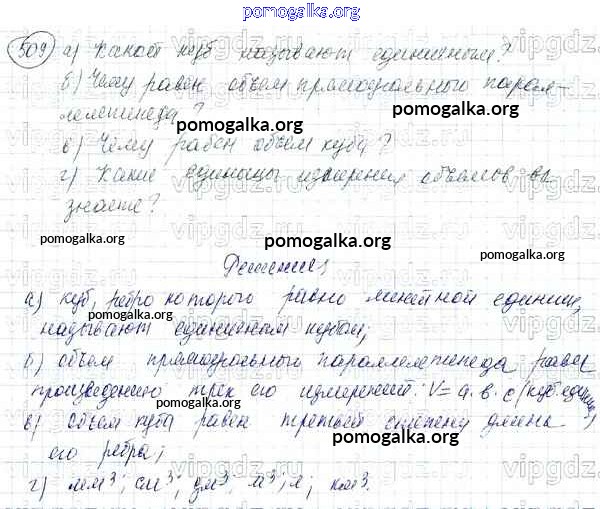 pomogalka.org
509 а) Какой куб называют единичным?
б) Чему равен объем прямоугольного парал-
лелепипеда?
pomogalka.org
pomogalka.org
в) Чему равен объем куба?
г) Какие единицы измерения объемов вы
знаете?
pomogalka.org
pomogalka.org
pomogalka.org
Решение
а) куб, ребро которого равно линейной единице,
называют единичным кубом;
б) объем прямоугольного параллелепипеда равен
произведению трех его измерений: V = a.b.c (куб.единиц)
pomogalka.org
в) Объем куба равен третьей степени длины
pomogalka.org
его ребра;
г) мм³; см³; дм³; м³; л; км³.
pomogalka.org